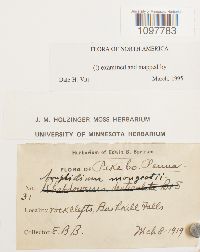 1097783
FLORA OF NORTH AMERICA
(!) examined and mapped by
Dale H. Vitt March, 1995
J. M. HOLZINGER MOSS HERBARIUM
UNIVERSITY OF MINNESOTA HERBARIUM
Herbarium of Edwin B. Bartram
FLORA OF Pike Co. Penna.
Amphidium mougeotii
No.
31
Locality rock clefts, Bushkill Falls
Collector E.B.B. Mch 8 1919